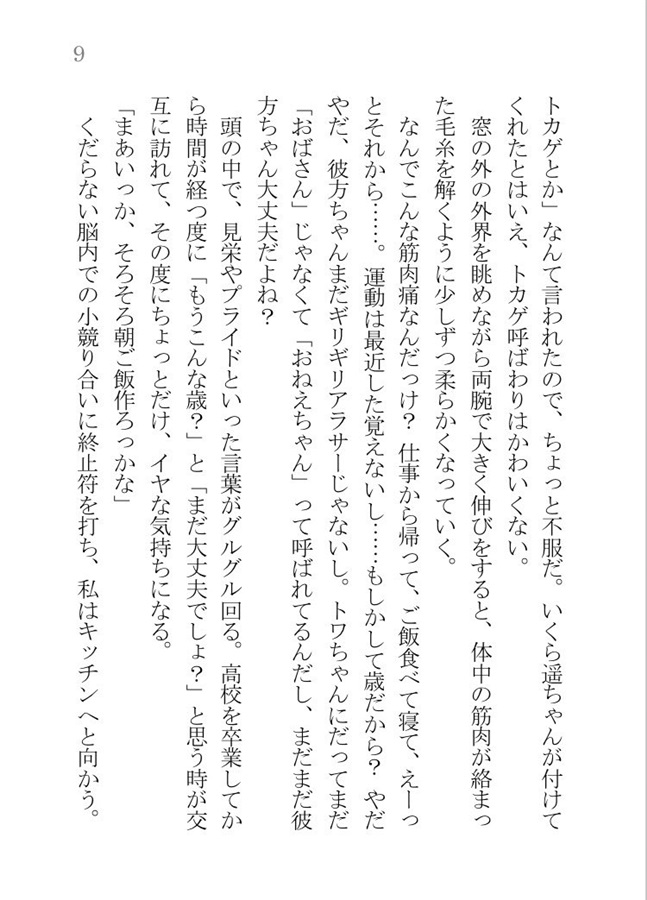 9
トカゲとか」なんて言われたので、ちょっと不服だ。いくら遥ちゃんが付けて
くれたとはいえ、トカゲ呼ばわりはかわいくない。
　窓の外の外界を眺めながら両腕で大きく伸びをすると、体中の筋肉が絡まっ
た毛糸を解くように少しずつ柔らかくなっていく。
　なんでこんな筋肉痛なんだっけ？　仕事から帰って、ご飯食べて寝て、えーっ
とそれから……。運動は最近した覚えないし……もしかして歳だから？　やだ
やだ、彼方ちゃんまだギリギリアラサーじゃないし。トワちゃんにだってまだ
「おばさん」じゃなくて「おねえちゃん」って呼ばれてるんだし、まだまだ彼
方ちゃん大丈夫だよね？
　頭の中で、見栄やプライドといった言葉がグルグル回る。高校を卒業してか
ら時間が経つ度に「もうこんな歳？」と「まだ大丈夫でしょ？」と思う時が交
互に訪れて、その度にちょっとだけ、イヤな気持ちになる。
「まあいっか、そろそろ朝ご飯作ろっかな」
　くだらない脳内での小競り合いに終止符を打ち、私はキッチンへと向かう。